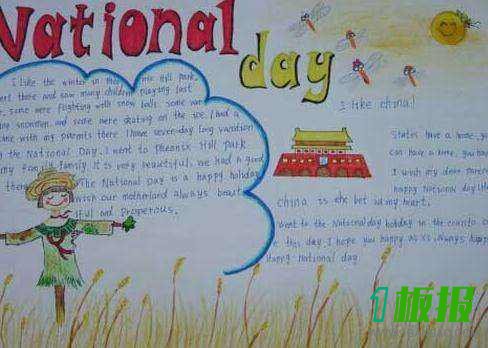 National
day
I like the winter in the Hill park.
there and saw many children playing last
some were flighting with snow balls. some were
snowmen. and some were skating on the ice. I had a
time with my parents there. I have seven-day long vacation
the National Day. I went to Pheonix Hill park
my family family. It is very beautiful. we had a good
there. The National Day is a happy holiday
wish our motherland always beaut
iful and Properous.
I like china!
States have a home, you
can have a home, you have
I wish my dear parents
happy National day
China is the bet in my heart.
went to the National day holiday in the
this day, I hope you happy always happy
Happy National day
1板报